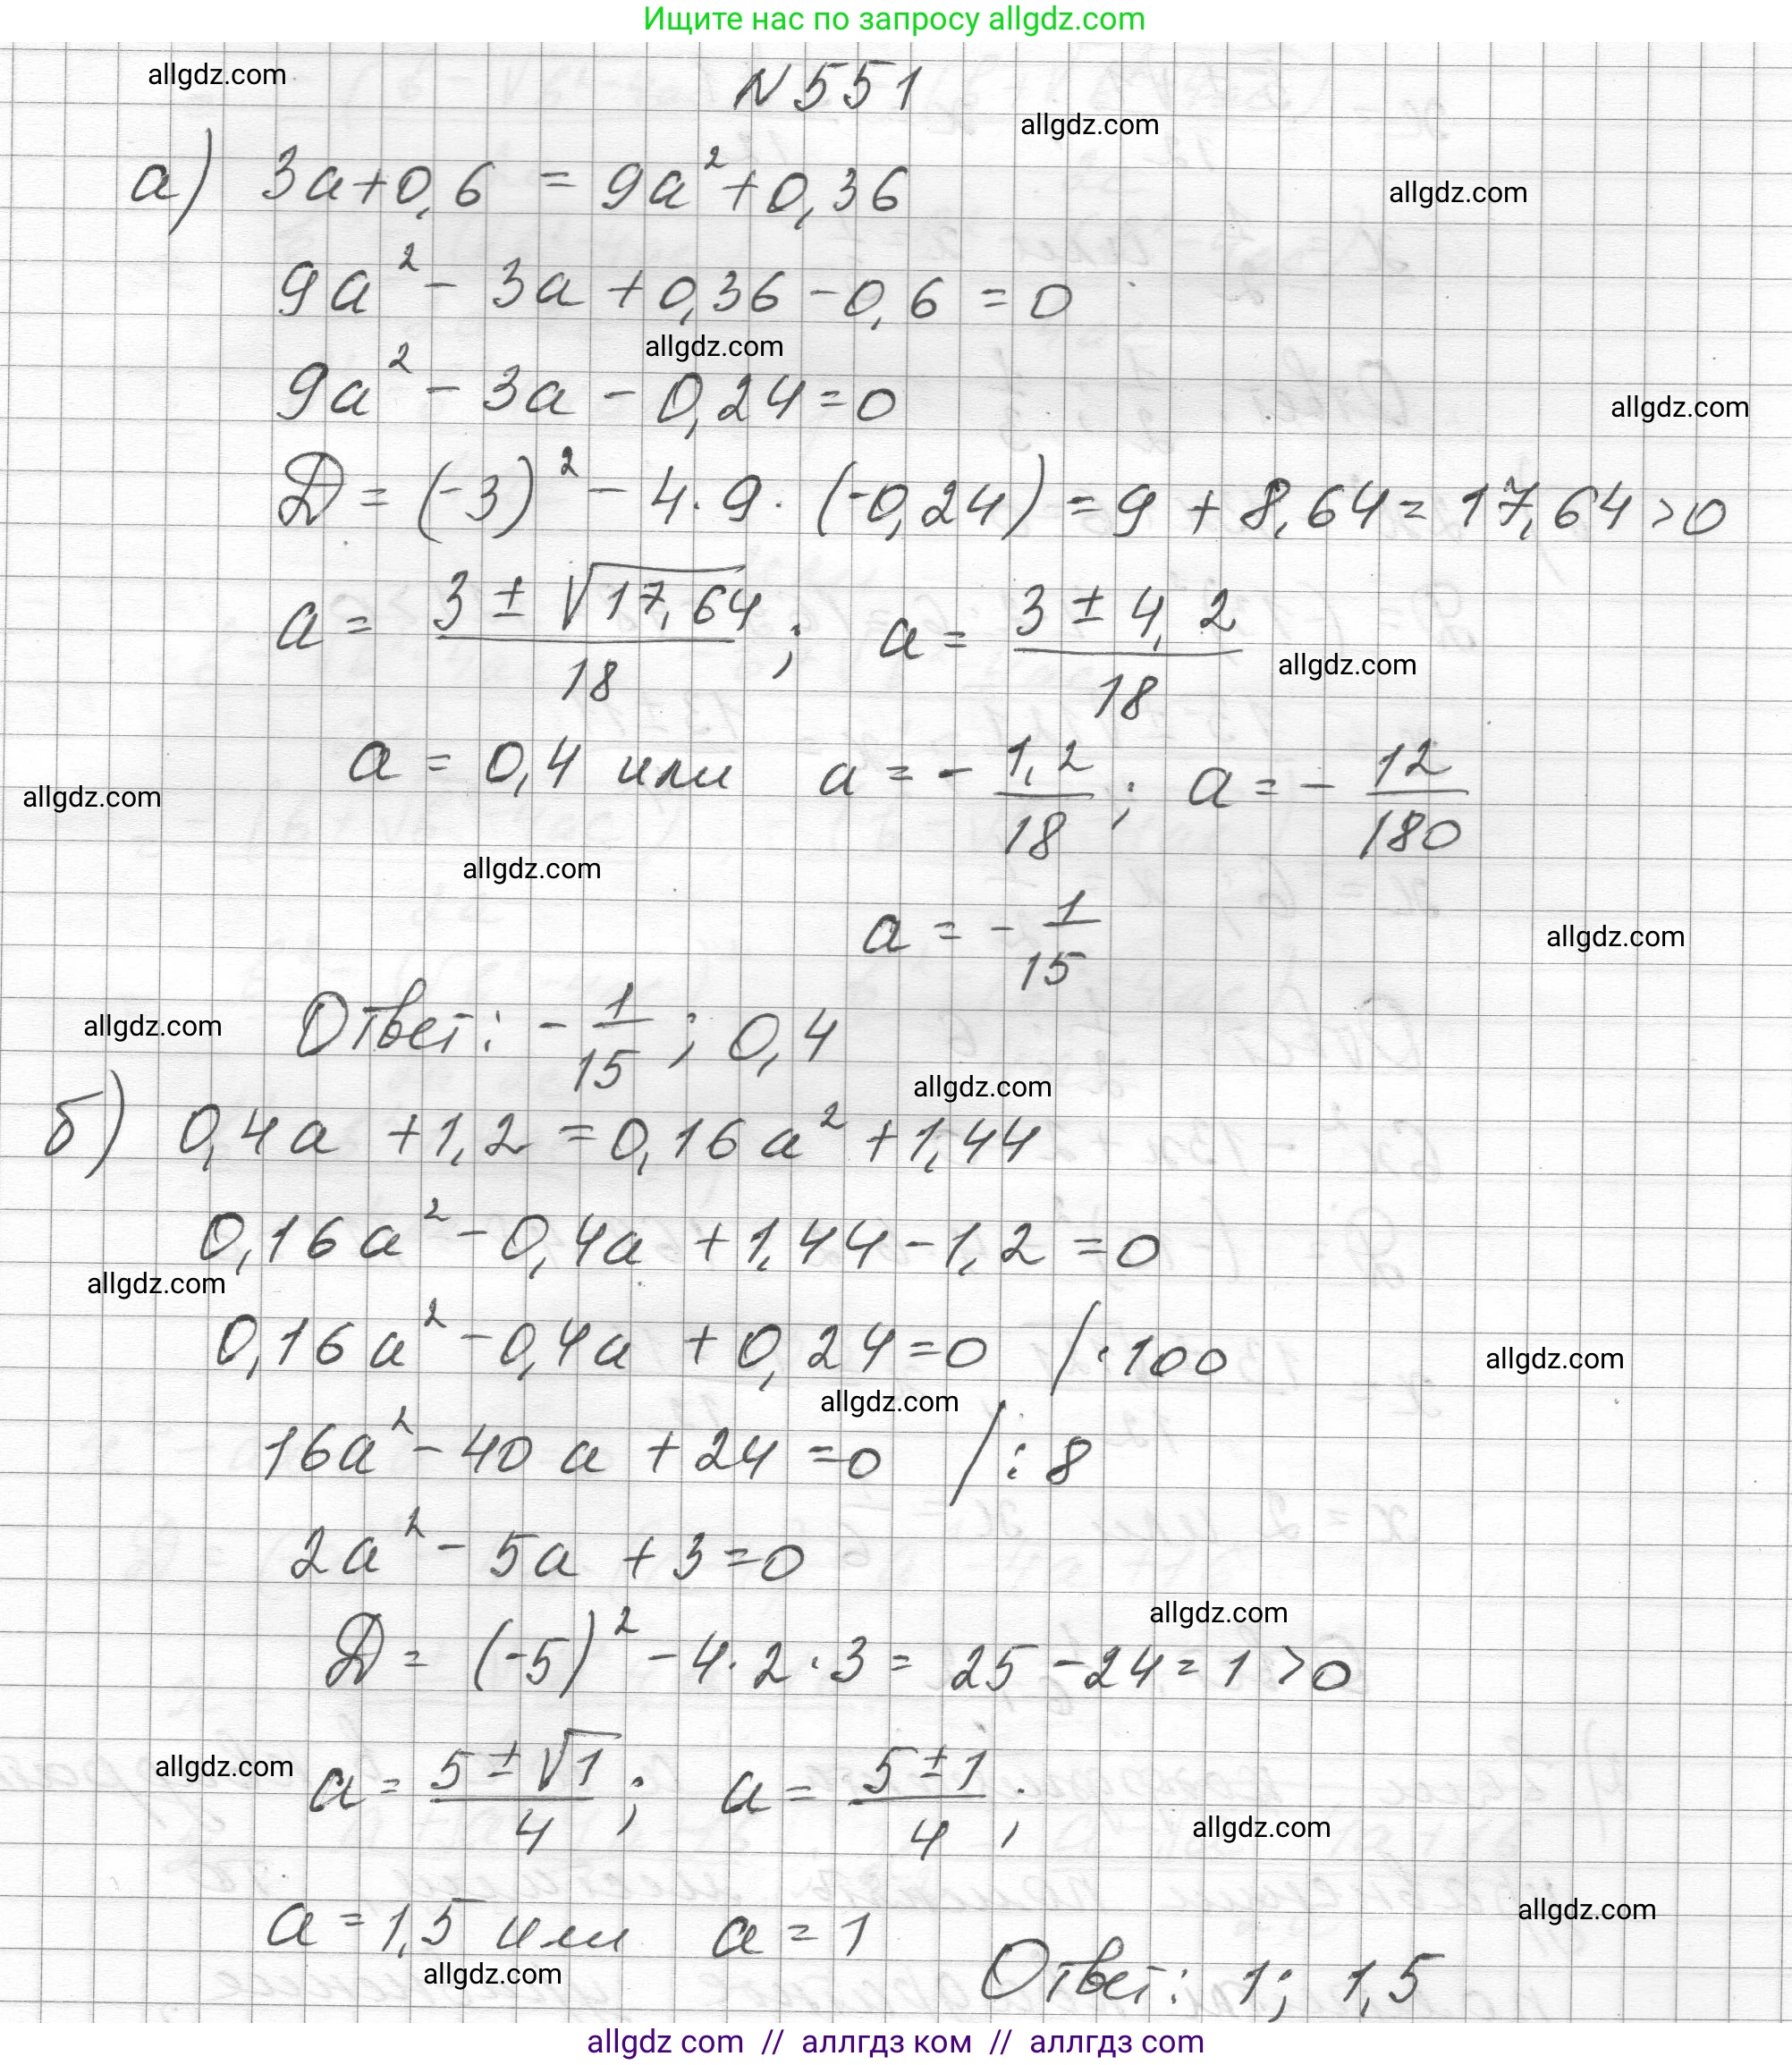 Ищите нас по запросу allgdz.com
allgdz.com
N 551
allgdz.com
а) 3a+0,6 = 9a²+0,36
allgdz.com
9a² - 3a + 0,36 - 0,6 = 0
allgdz.com
9a² - 3a - 0,24 = 0
allgdz.com
D = (-3)² - 4·9·(-0,24) = 9 + 8,64 = 17,64 > 0
a = (3 ± √17,64)/18 ; a = (3 ± 4,2)/18
allgdz.com
a = 0,4 или a = - 1,2/18 ; a = - 12/180
allgdz.com
allgdz.com
a = - 1/15
allgdz.com
Ответ: - 1/15 ; 0,4
allgdz.com
allgdz.com
б) 0,4a + 1,2 = 0,16a² + 1,44
0,16a² - 0,4a + 1,44 - 1,2 = 0
allgdz.com
0,16a² - 0,4a + 0,24 = 0 /·100
allgdz.com
allgdz.com
16a² - 40a + 24 = 0 /:8
2a² - 5a + 3 = 0
allgdz.com
D = (-5)² - 4·2·3 = 25 - 24 = 1 > 0
allgdz.com
a = (5 ± √1)/4 ; a = (5 ± 1)/4 ;
allgdz.com
allgdz.com
a = 1,5 или a = 1
allgdz.com
Ответ: 1; 1,5
allgdz com // аллгдз ком // аллгдз com